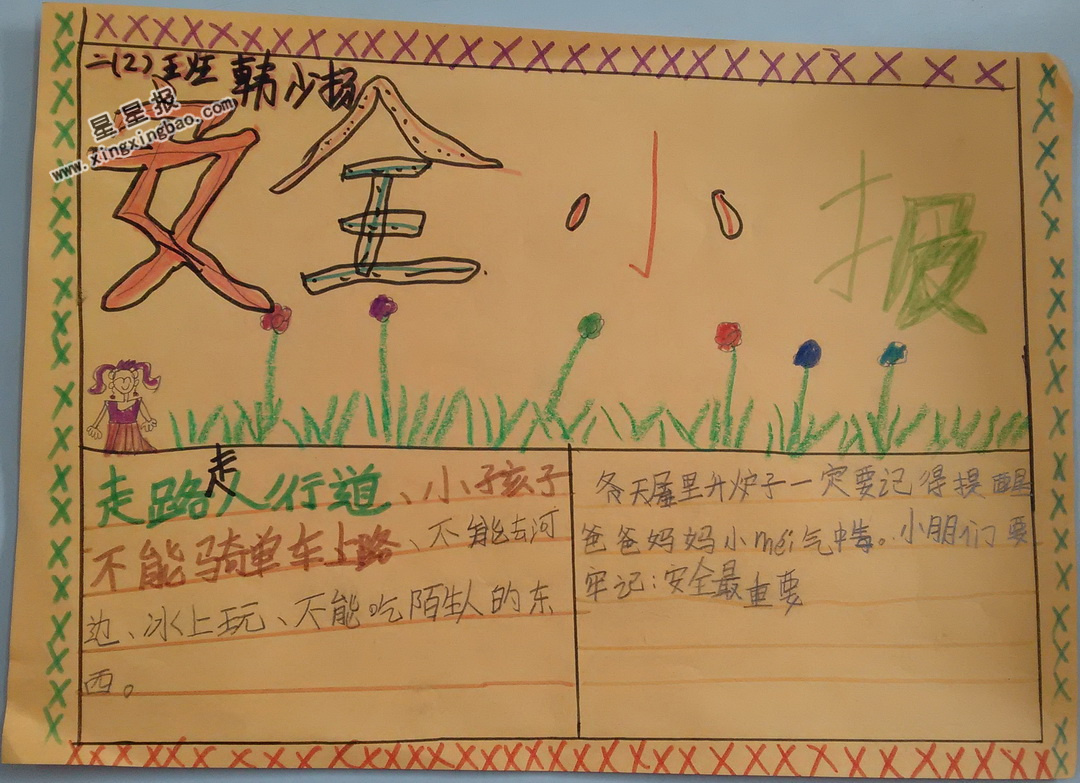 二(2)王 韩少扬
星星报
www.xingxingbao.com
安全小报
走路走人行道、小孩子
不能骑单车上路、不能去河
边、冰上玩、不能吃陌生人的东
西。
冬天屋里升炉子一定要记得提醒
爸爸妈妈小mei气中毒。小朋们要
牢记:安全最重要